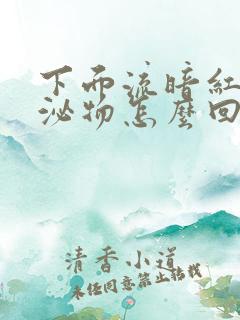 下面流暗红
泌物怎麽回
清香小道
未经同意禁止转载